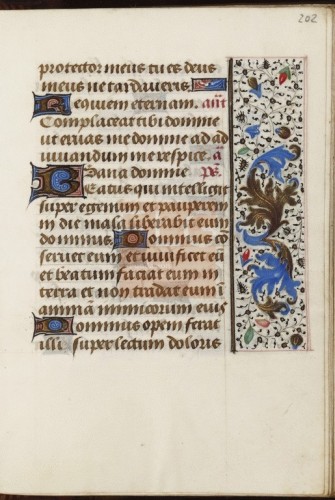 202
protector meus tu es deus
meus ne tardaveris
Requiem eternam. añt
Complaceat tibi domine
ut eruas me domine ad ad
iuvandum me respice. a
Sana domine ps.
Beatus qui intelligit
super egenum et pauperem
in die mala liberabit eum
dominus. Dominus co
servet eum et vivificet eu
et beatum faciat eum in
terra et non tradat eum ī
animā inimicorum eius
Dominus opem ferat
illi super lectum doloris